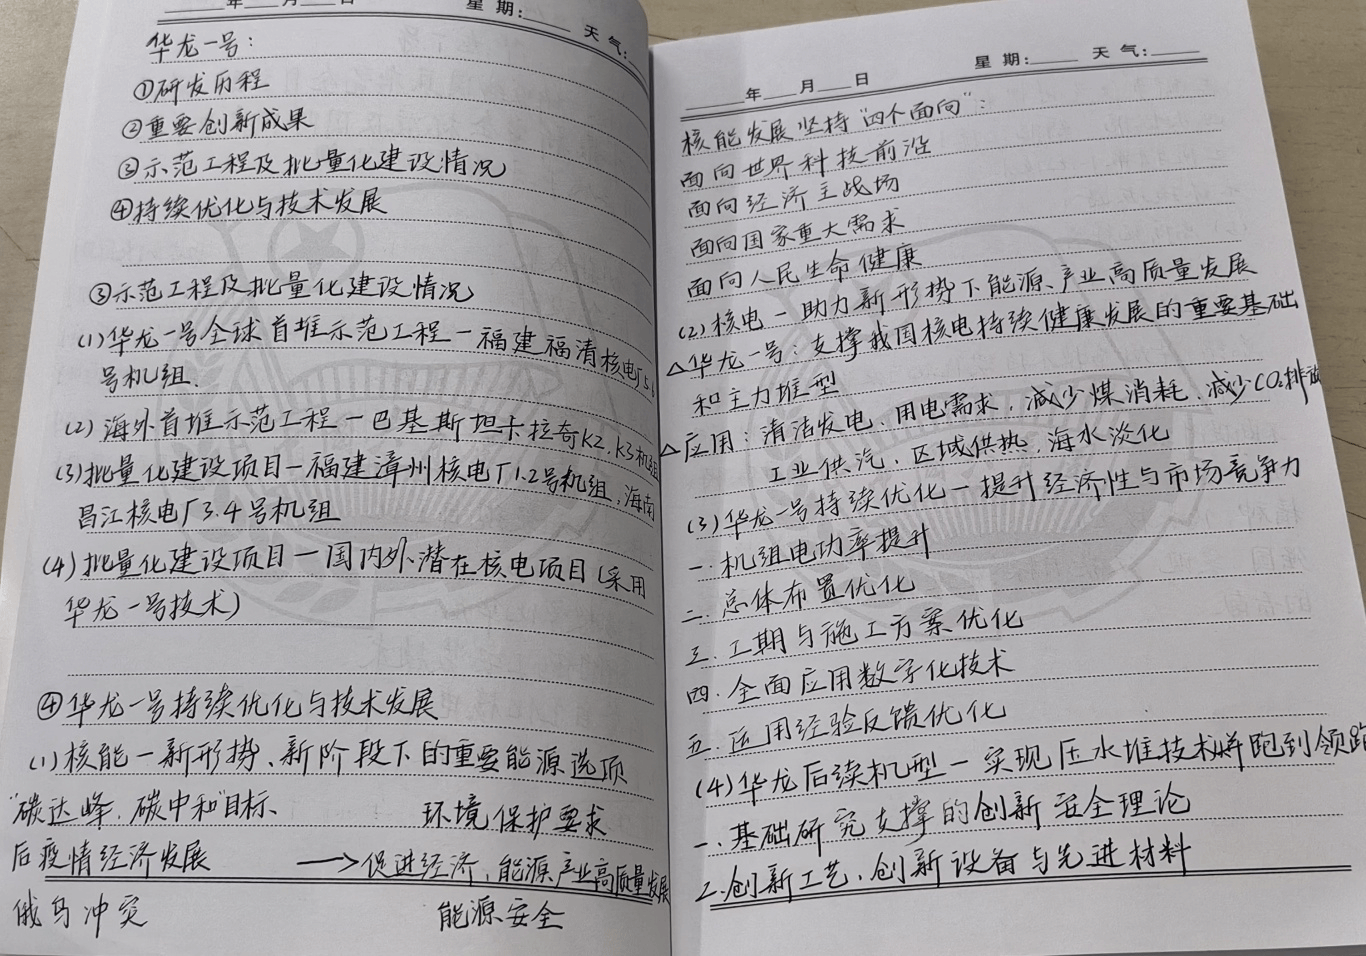 年 月 日 星期: 天气:
华龙一号:
①研发历程
②重要创新成果
③示范工程及批量化建设情况
④持续优化与技术发展
③示范工程及批量化建设情况
(1)华龙一号全球首堆示范工程一福建福清核电厂5.6
号机组.
(2)海外首堆示范工程一巴基斯坦卡拉奇K2.K3机组
(3)批量化建设项目一福建漳州核电厂1.2号机组,海南
昌江核电厂3.4号机组
(4)批量化建设项目一国内外潜在核电项目(采用
华龙一号技术)
④华龙一号持续优化与技术发展
(1)核能一新形势、新阶段下的重要能源选项
"碳达峰,碳中和"目标、 环境保护要求
后疫情经济发展 →促进经济,能源产业高质量发展
俄乌冲突 能源安全
年 月 日 星期: 天气:
核能发展坚持"四个面向":
面向世界科技前沿
面向经济主战场
面向国家重大需求
面向人民生命健康
(2)核电一助力新形势下能源、产业高质量发展
△华龙一号:支撑我国核电持续健康发展的重要基础
和主力堆型
△应用:清洁发电、用电需求,减少煤消耗、减少CO₂排放
工业供汽、区域供热,海水淡化
(3)华龙一号持续优化一提升经济性与市场竞争力
一.机组电功率提升
二.总体布置优化
三.工期与施工方案优化
四.全面应用数字化技术
五.运用经验反馈优化
(4)华龙后续机型一实现压水堆技术并跑到领跑
一.基础研究支撑的创新安全理论
二.创新工艺,创新设备与先进材料